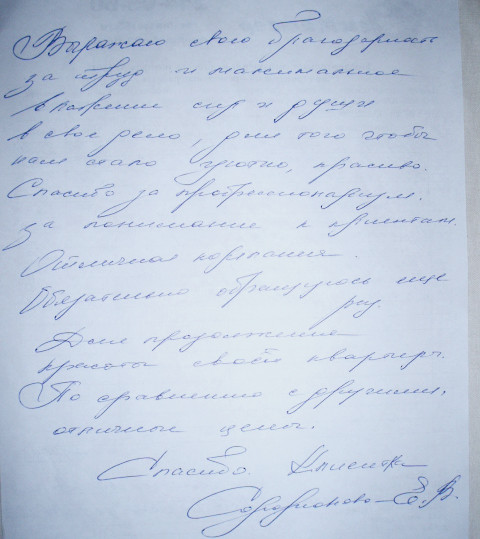 Выражаю свою благодарность
за труд и максимальное
вложение сил и души
в свое дело, для того чтобы
нам стало уютно, красиво.
Спасибо за профессионализм.
за понимание к клиентам.
Отличная компания.
Обязательно обращусь еще
раз.
Для продолжения
красоты своей квартиры.
По сравнению с другими,
отличные цены.
Спасибо. Клиентка
Е. В.